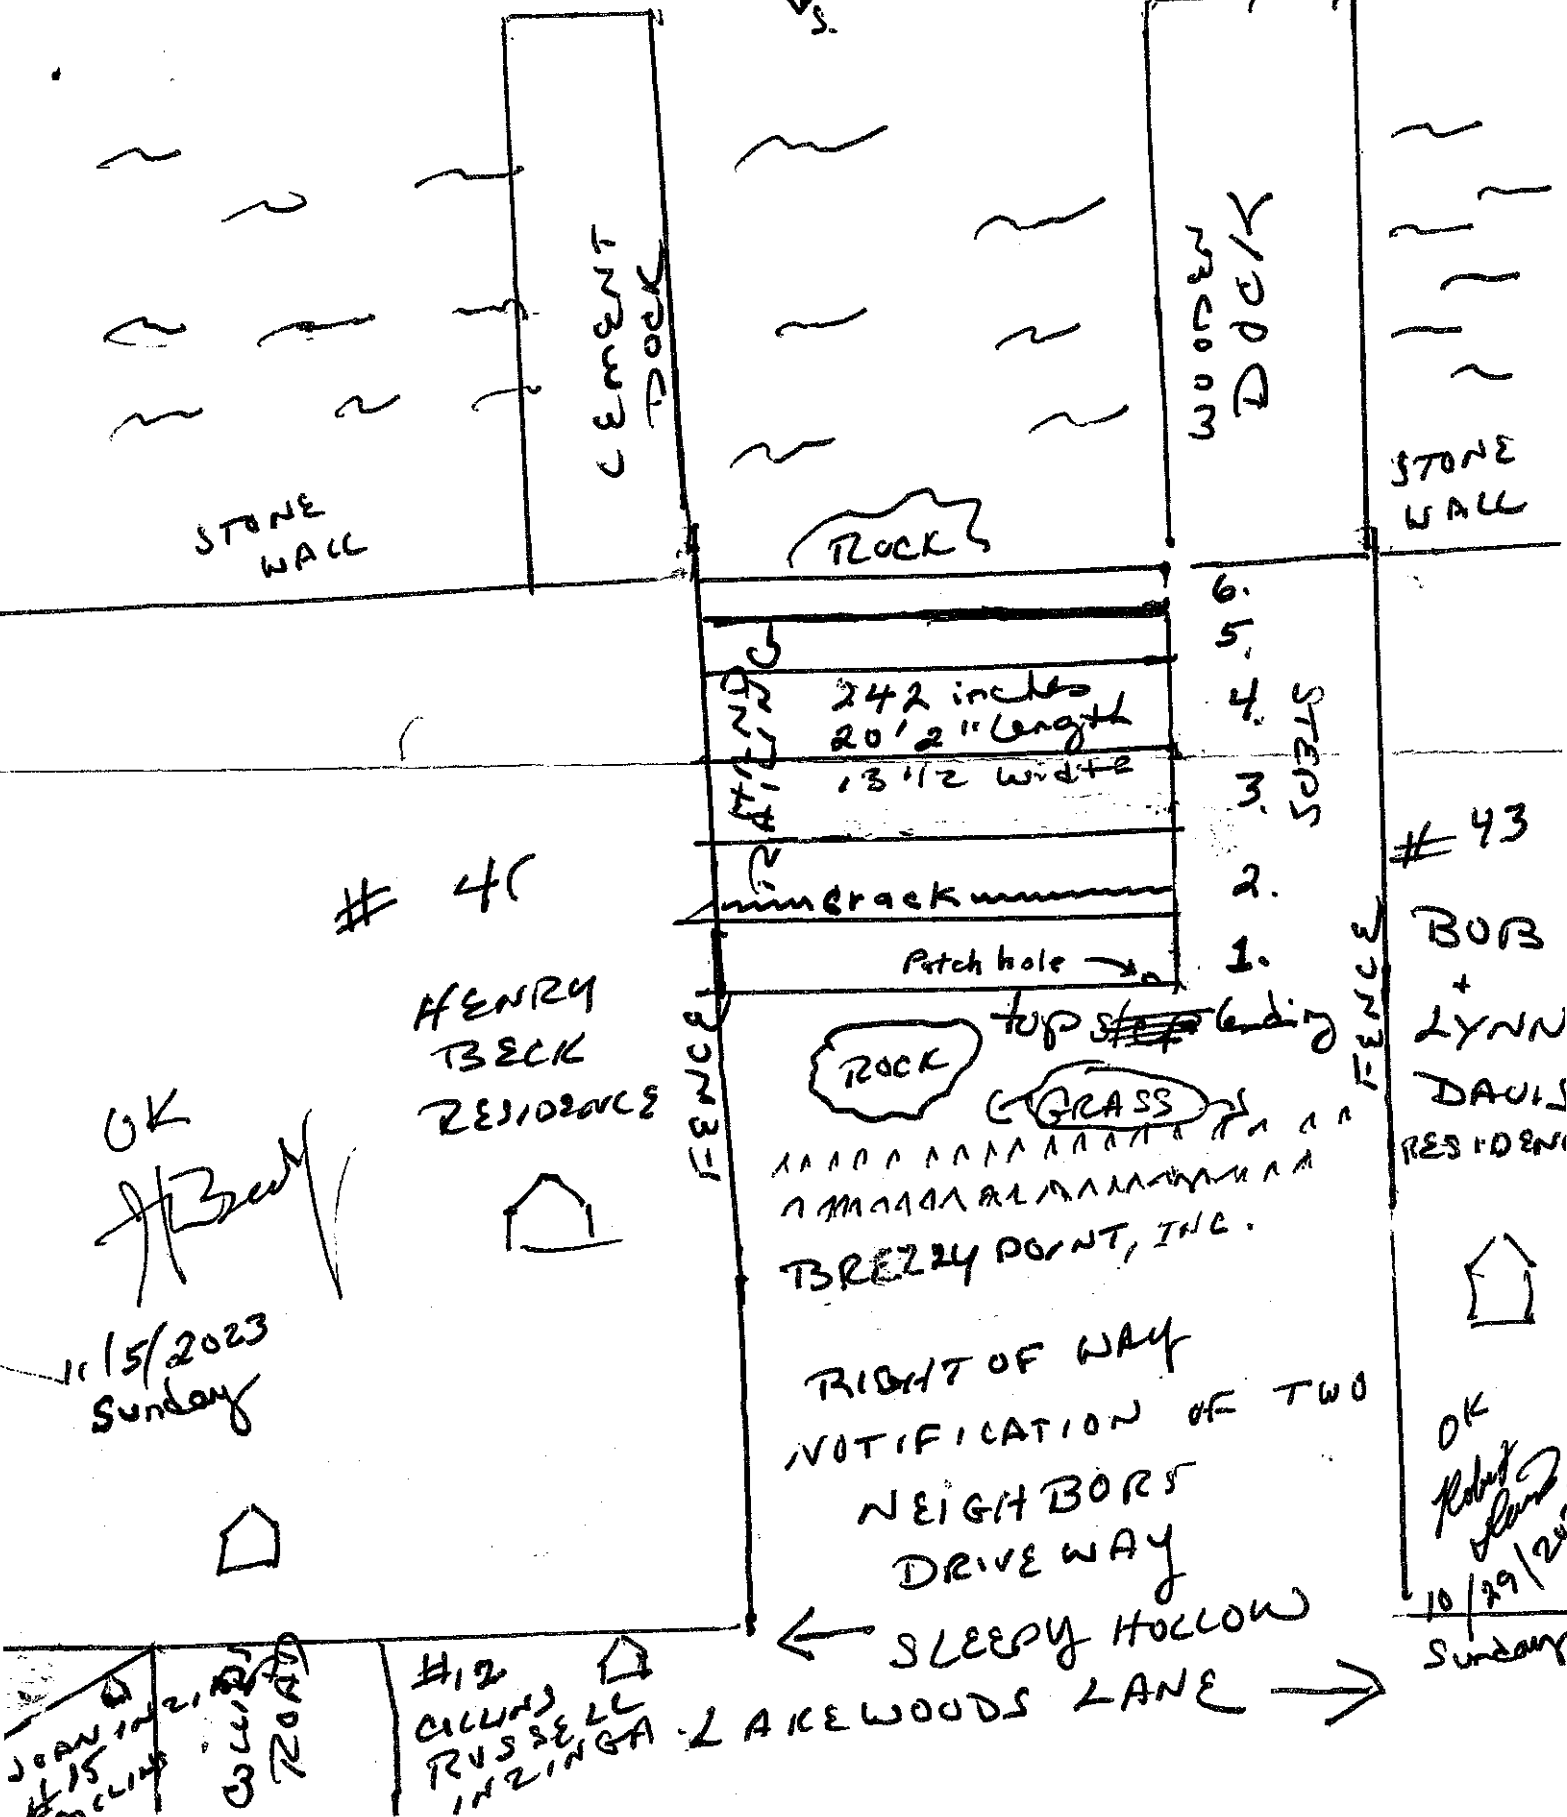 S.
CEMENT
DOCK
WOODEN
DOCK
STONE
WALL
STONE
WALL
ROCK
6.
5.
4.
3.
2.
1.
STEPS
HAND
RAILING
242 inches
20'2" Length
13 1/2 width
crack
Patch hole
top landing
ROCK
GRASS
FENCE
FENCE
# 41
HENRY
BECK
RESIDENCE
OK
HBeck
11/5/2023
Sunday
# 43
BOB
+
LYNN
DAVIS
RESIDEN
OK
Robert
Davis
10/29/20
Sunday
BREZZY POINT, INC.
RIGHT OF WAY
NOTIFICATION OF TWO
NEIGHBORS
DRIVEWAY
← SLEEPY HOLLOW
LAKEWOODS LANE →
#12
RUSSELL
INZINGA
ROAD
JOAN INZINGA
#15